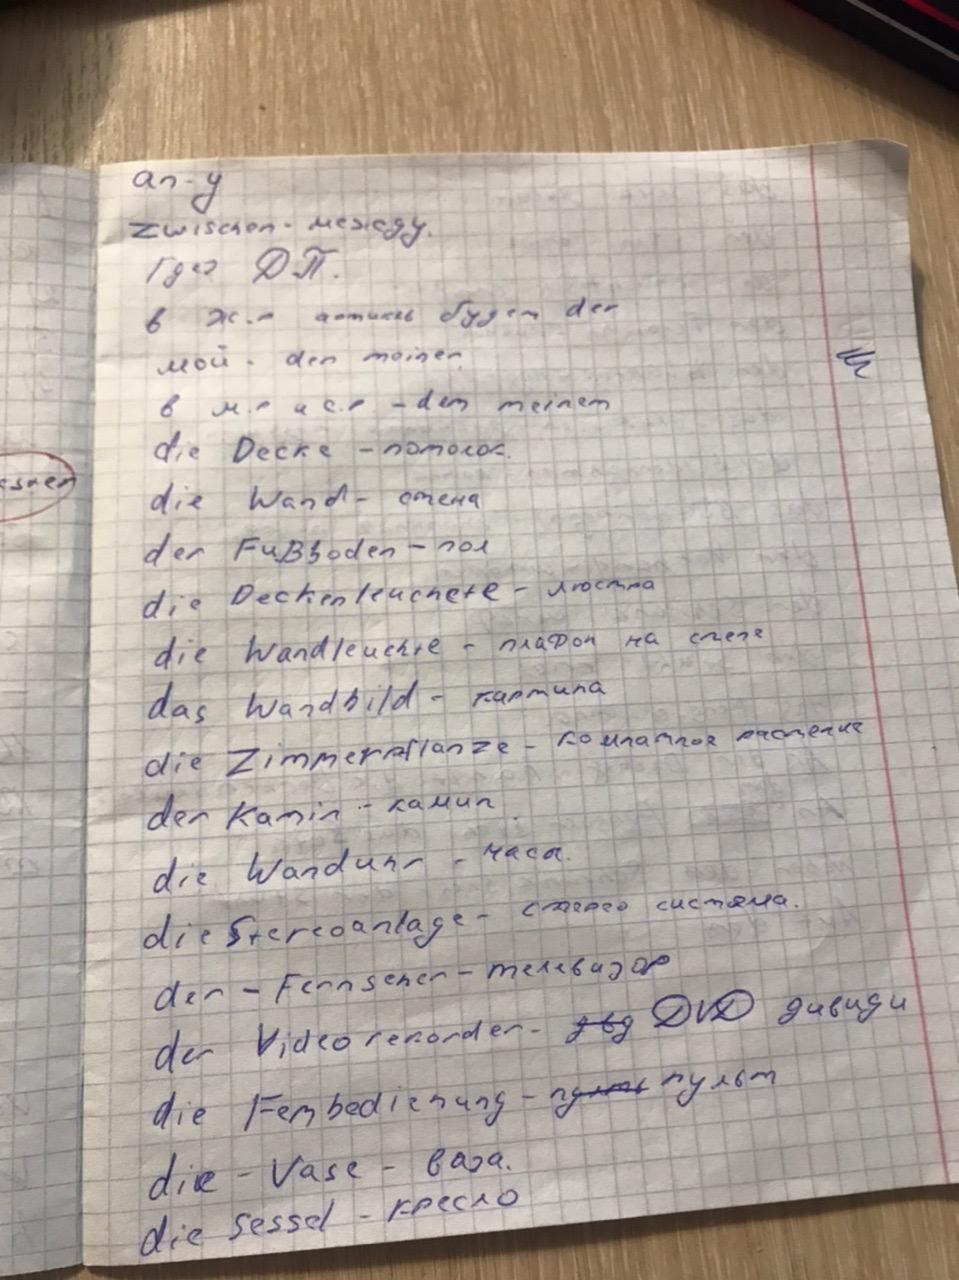 an - у
zwischen - между.
Где? Д.П.
в ж.р артикль будет der
мой - der meiner
в м.р и с.р - dem meinem
die Decke - потолок.
die Wand - стена
der Fußboden - пол
die Deckenleuchete - люстра
die Wandleuchte - плафон на стене
das Wandbild - картина
die Zimmerpflanze - комнатное растение
der Kamin - камин
die Wanduhr - часы.
die Stereoanlage - стерео система.
der - Fernseher - телевизор
der Videorekorder - двд DVD дивиди
die Fernbedienung - пульт пульт
die - Vase - ваза.
die Sessel - кресло